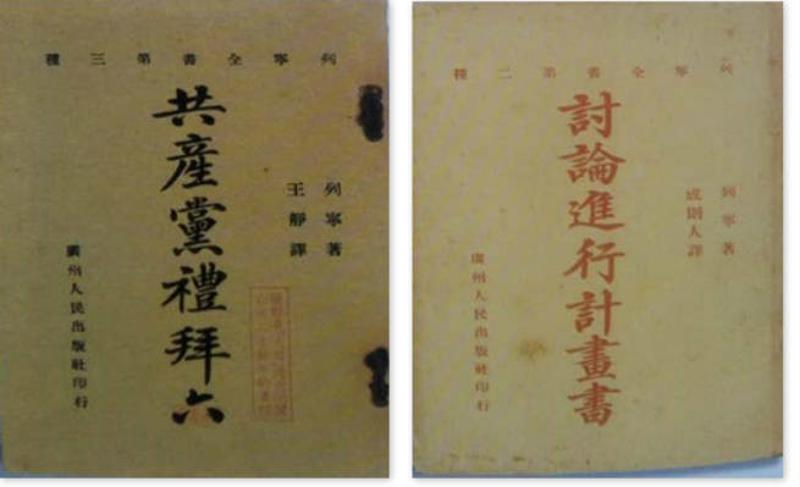 列寧全書第三種
列寧著
王靜譯
共産黨禮拜六
廣州人民出版社印行
列寧全書第二種
列寧著
成則人譯
討論進行計畫書
廣州人民出版社印行